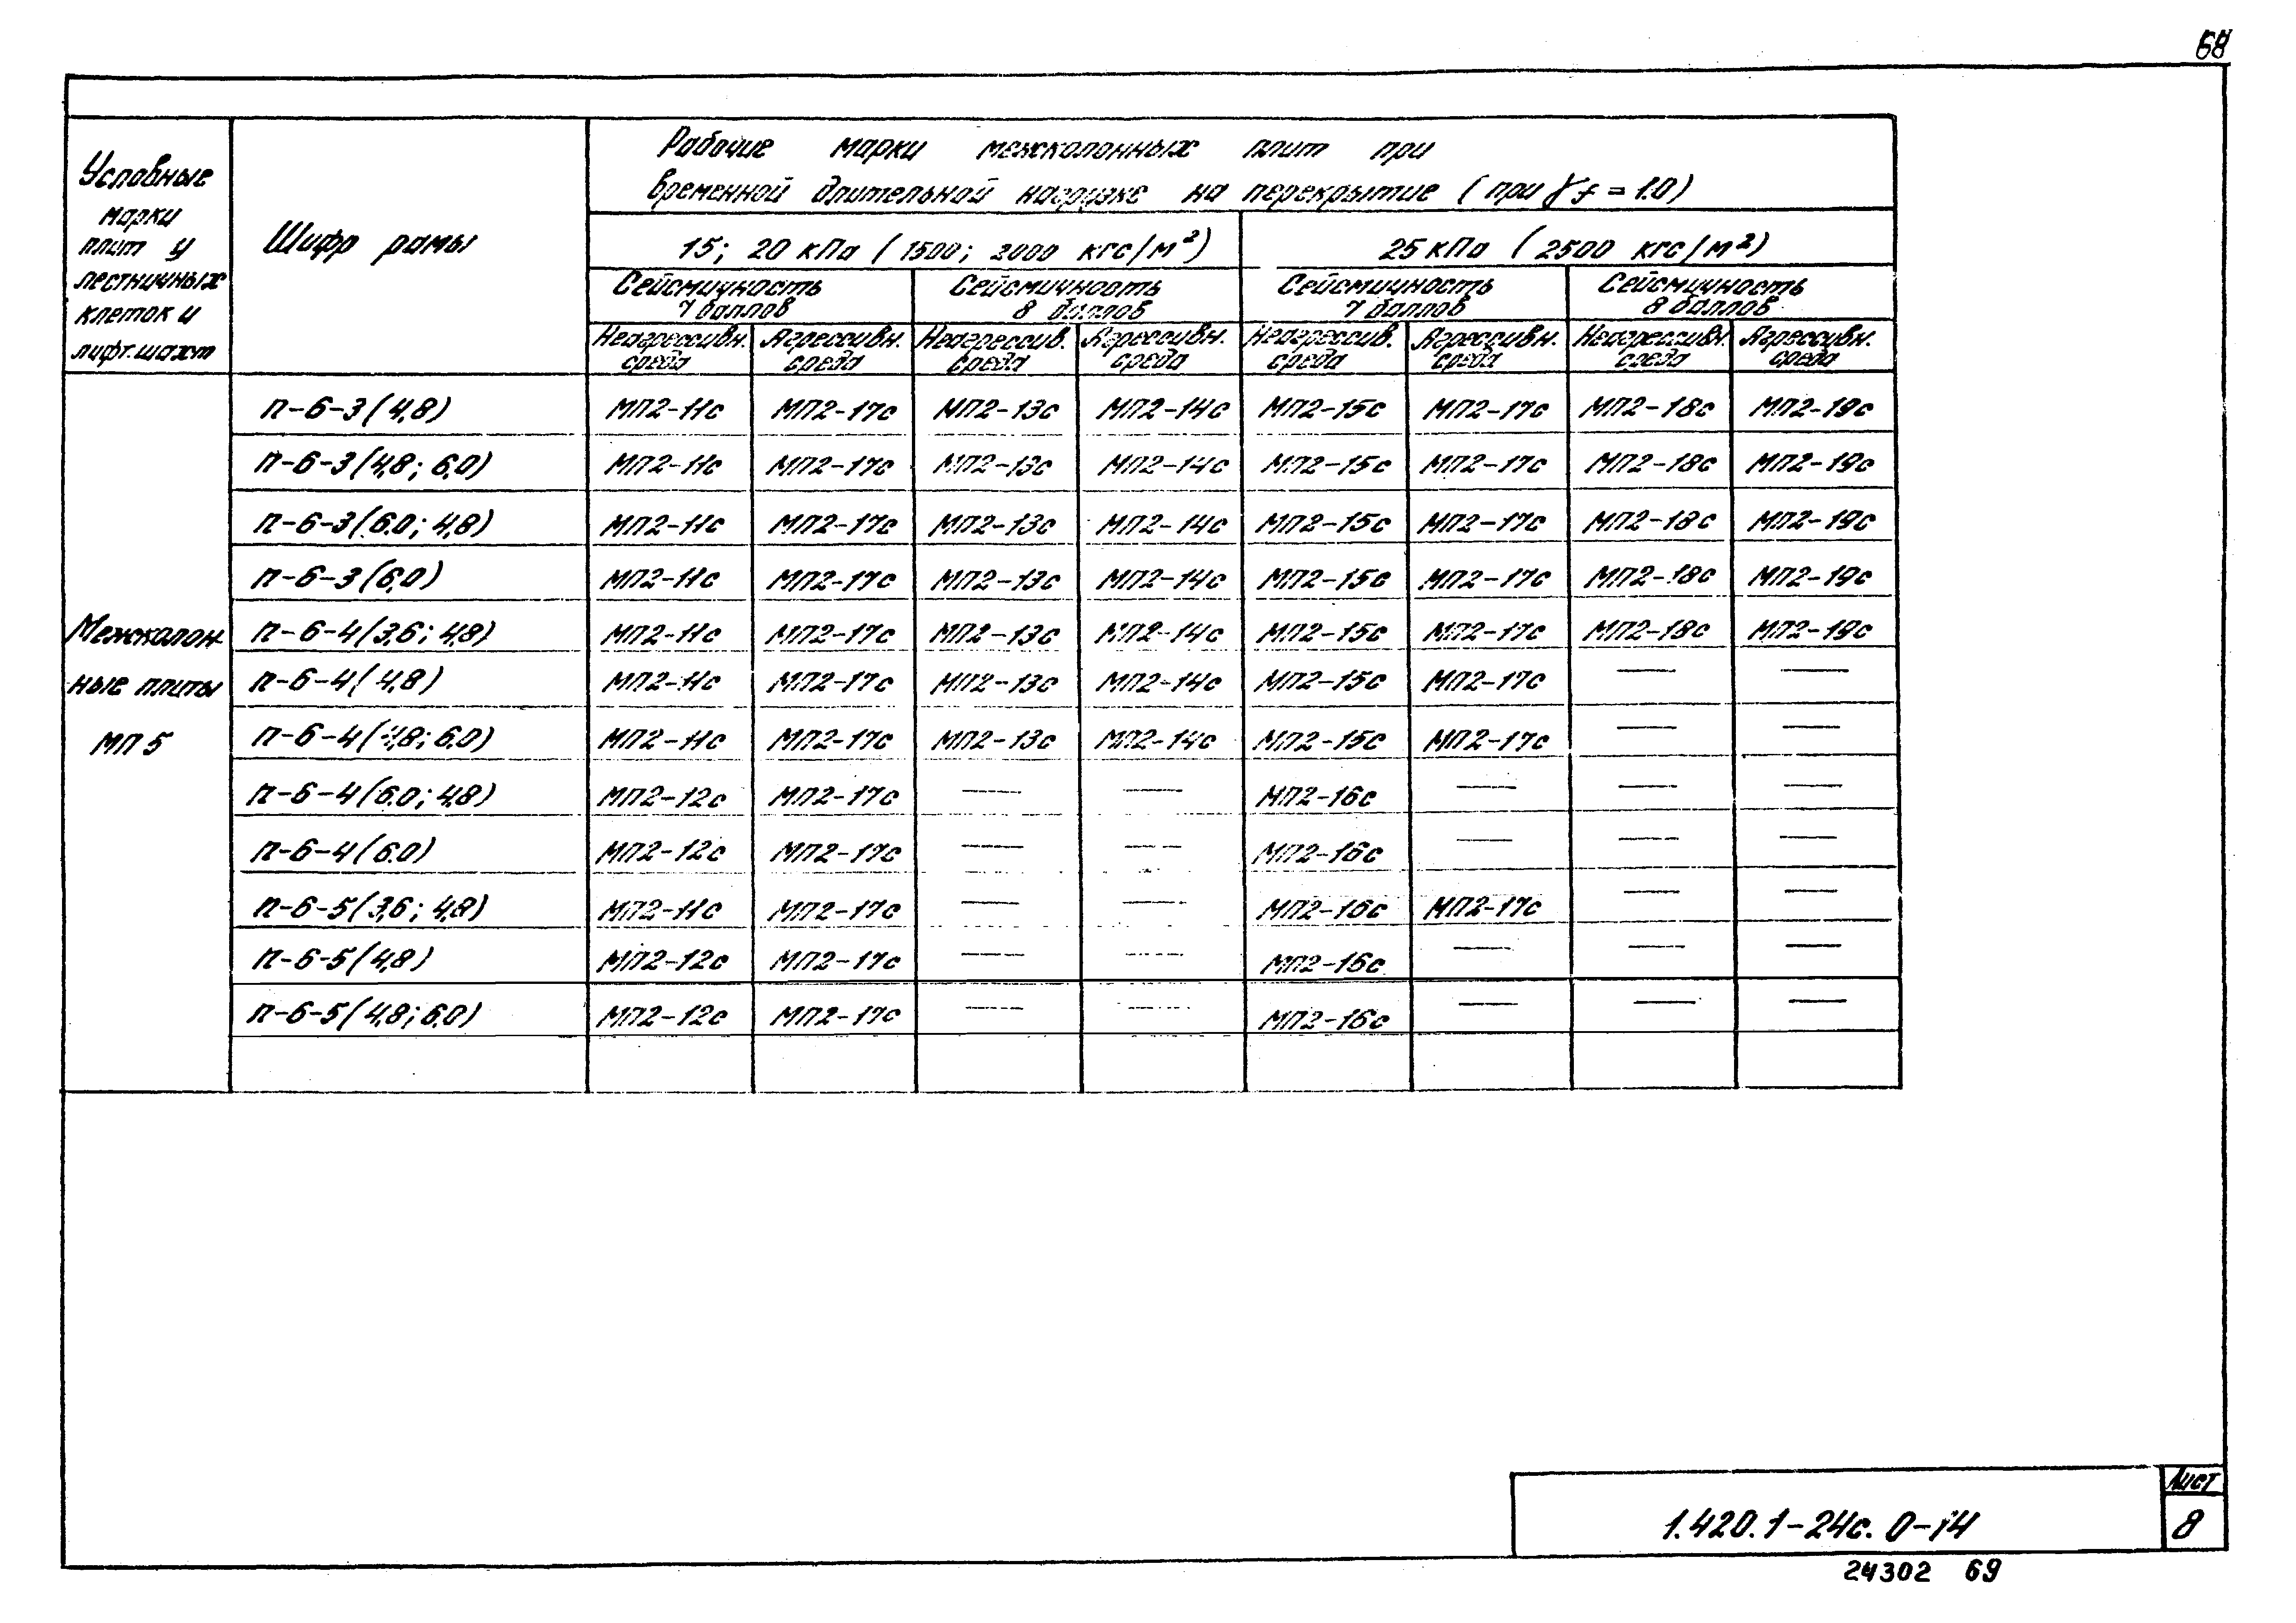 68
Условные
марки
плит у
лестничных
клеток и
лифт. шахт
Шифр рамы
Рабочие марки межколонных плит при
временной длительной нагрузке на перекрытие (при γf = 1.0)
15; 20 кПа (1500; 2000 кгс/м²)
25 кПа (2500 кгс/м²)
Сейсмичность
7 баллов
Сейсмичность
8 баллов
Сейсмичность
7 баллов
Сейсмичность
8 баллов
Неагрессивн.
среда
Агрессивн.
среда
Неагрессив.
среда
Агрессивн.
среда
Неагрессив.
среда
Агрессивн.
среда
Неагрессивн.
среда
Агрессивн.
среда
Межколон-
ные плиты
МП5
п-6-3(4,8) МП2-11с МП2-17с МП2-13с МП2-14с МП2-15с МП2-17с МП2-18с МП2-19с
п-6-3(4,8; 6,0) МП2-11с МП2-17с МП2-13с МП2-14с МП2-15с МП2-17с МП2-18с МП2-19с
п-6-3(6.0; 4,8) МП2-11с МП2-17с МП2-13с МП2-14с МП2-15с МП2-17с МП2-18с МП2-19с
п-6-3(6,0) МП2-11с МП2-17с МП2-13с МП2-14с МП2-15с МП2-17с МП2-18с МП2-19с
п-6-4(3,6; 4,8) МП2-11с МП2-17с МП2-13с МП2-14с МП2-15с МП2-17с МП2-18с МП2-19с
п-6-4(4,8) МП2-11с МП2-17с МП2-13с МП2-14с МП2-15с МП2-17с — —
п-6-4(4,8; 6.0) МП2-11с МП2-17с МП2-13с МП2-14с МП2-15с МП2-17с — —
п-6-4(6.0; 4,8) МП2-12с МП2-17с — — МП2-16с — — —
п-6-4(6.0) МП2-12с МП2-17с — — МП2-16с — — —
п-6-5(3,6; 4,8) МП2-11с МП2-17с — — МП2-16с МП2-17с — —
п-6-5(4,8) МП2-12с МП2-17с — — МП2-16с — — —
п-6-5(4,8; 6,0) МП2-12с МП2-17с — — МП2-16с — — —
1.420.1-24с. 0-14
Лист
8
24302 69